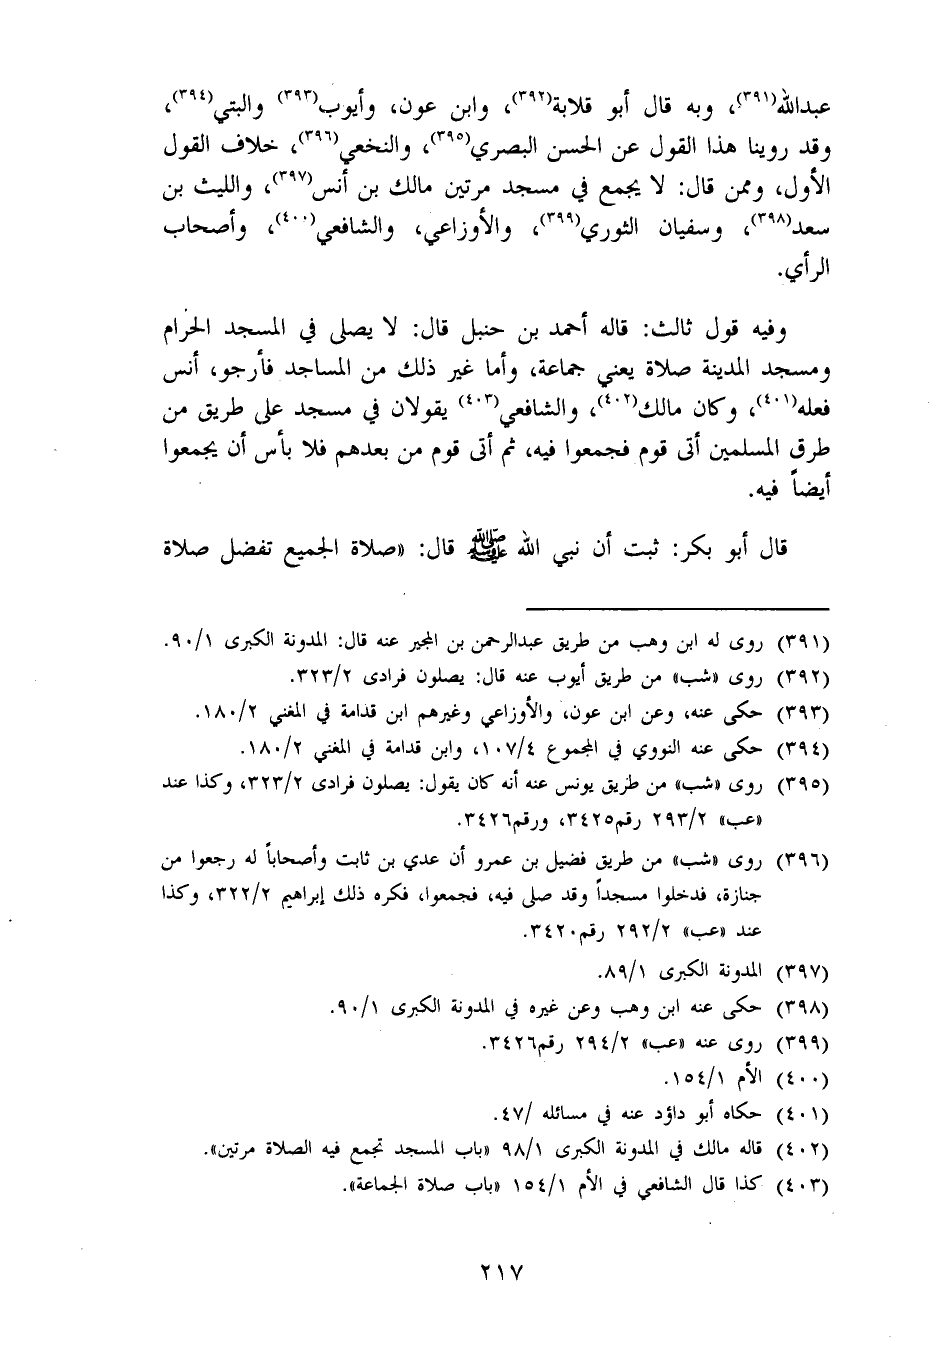 عبدالله(٣٩١)، وبه قال أبو قلابة(٣٩٢)، وابن عون، وأيوب(٣٩٣) والبتي(٣٩٤)،
وقد روينا هذا القول عن الحسن البصري(٣٩٥)، والنخعي(٣٩٦)، خلاف القول
الأول، وممن قال: لا يجمع في مسجد مرتين مالك بن أنس(٣٩٧)، والليث بن
سعد(٣٩٨)، وسفيان الثوري(٣٩٩)، والأوزاعي، والشافعي(٤٠٠)، وأصحاب
الرأي.
وفيه قول ثالث: قاله أحمد بن حنبل قال: لا يصلى في المسجد الحرام
ومسجد المدينة صلاة يعني جماعة، وأما غير ذلك من المساجد فأرجو، أنس
فعله(٤٠١)، وكان مالك(٤٠٢)، والشافعي(٤٠٣) يقولان في مسجد على طريق من
طرق المسلمين أتى قوم فجمعوا فيه، ثم أتى قوم من بعدهم فلا بأس أن يجمعوا
أيضاً فيه.
قال أبو بكر: ثبت أن نبي الله ﷺ قال: «صلاة الجميع تفضل صلاة
(٣٩١) روى له ابن وهب من طريق عبدالرحمن بن المجير عنه قال: المدونة الكبرى ٩٠/١.
(٣٩٢) روى «شب» من طريق أيوب عنه قال: يصلون فرادى ٣٢٣/٢.
(٣٩٣) حكى عنه، وعن ابن عون، والأوزاعي وغيرهم ابن قدامة في المغني ١٨٠/٢.
(٣٩٤) حكى عنه النووي في المجموع ١٠٧/٤، وابن قدامة في المغني ١٨٠/٢.
(٣٩٥) روى «شب» من طريق يونس عنه أنه كان يقول: يصلون فرادى ٣٢٣/٢، وكذا عند
«عب» ٢٩٣/٢ رقم٣٤٢٥، ورقم٣٤٢٦.
(٣٩٦) روى «شب» من طريق فضيل بن عمرو أن عدي بن ثابت وأصحاباً له رجعوا من
جنازة، فدخلوا مسجداً وقد صلى فيه، فجمعوا، فكره ذلك إبراهيم ٣٢٢/٢، وكذا
عند «عب» ٢٩٢/٢ رقم٣٤٢٠.
(٣٩٧) المدونة الكبرى ٨٩/١.
(٣٩٨) حكى عنه ابن وهب وعن غيره في المدونة الكبرى ٩٠/١.
(٣٩٩) روى عنه «عب» ٢٩٤/٢ رقم٣٤٢٦.
(٤٠٠) الأم ١٥٤/١.
(٤٠١) حكاه أبو داؤد عنه في مسائله /٤٧.
(٤٠٢) قاله مالك في المدونة الكبرى ٩٨/١ «باب المسجد تجمع فيه الصلاة مرتين».
(٤٠٣) كذا قال الشافعي في الأم ١٥٤/١ «باب صلاة الجماعة».
٢١٧